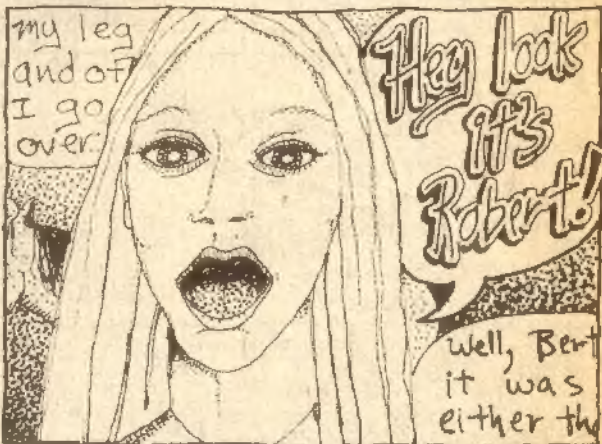 my leg
and off
I go
over.
Hey look
it's
Robert!
Well, Bert
it was
either